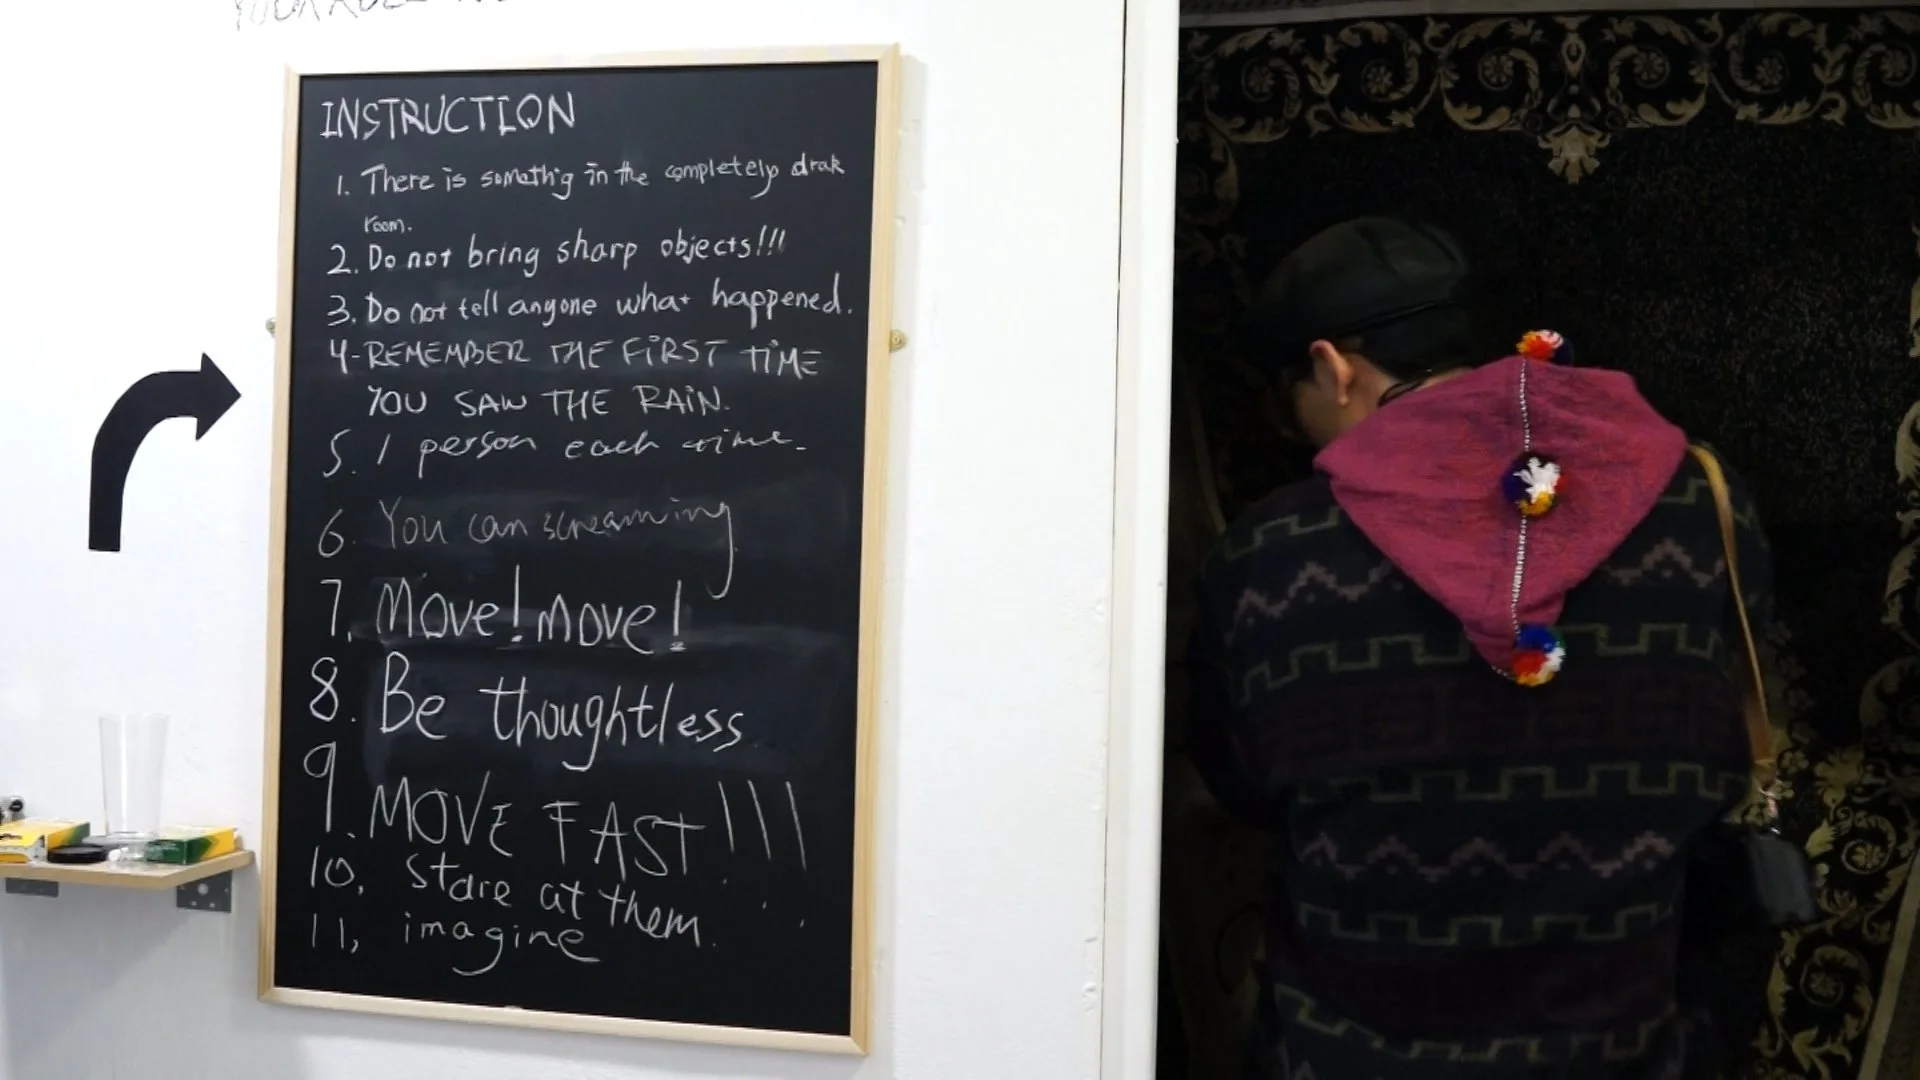 INSTRUCTION
1. There is somethig in the completely drak
room.
2. Do not bring sharp objects!!!
3. Do not tell anyone what happened.
4-REMEMBER THE FIRST TIME
YOU SAW THE RAIN.
5. 1 person each time.
6. You can screaming
7. Move! move!
8. Be thoughtless
9. MOVE FAST!!!
10. stare at them.
11, imagine